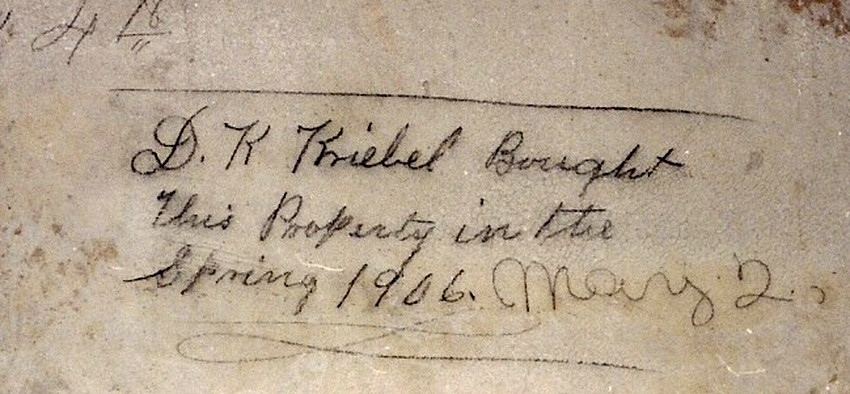 4 18
D. K Kriebel Bought
This Property in the
Spring 1906. May. 2.